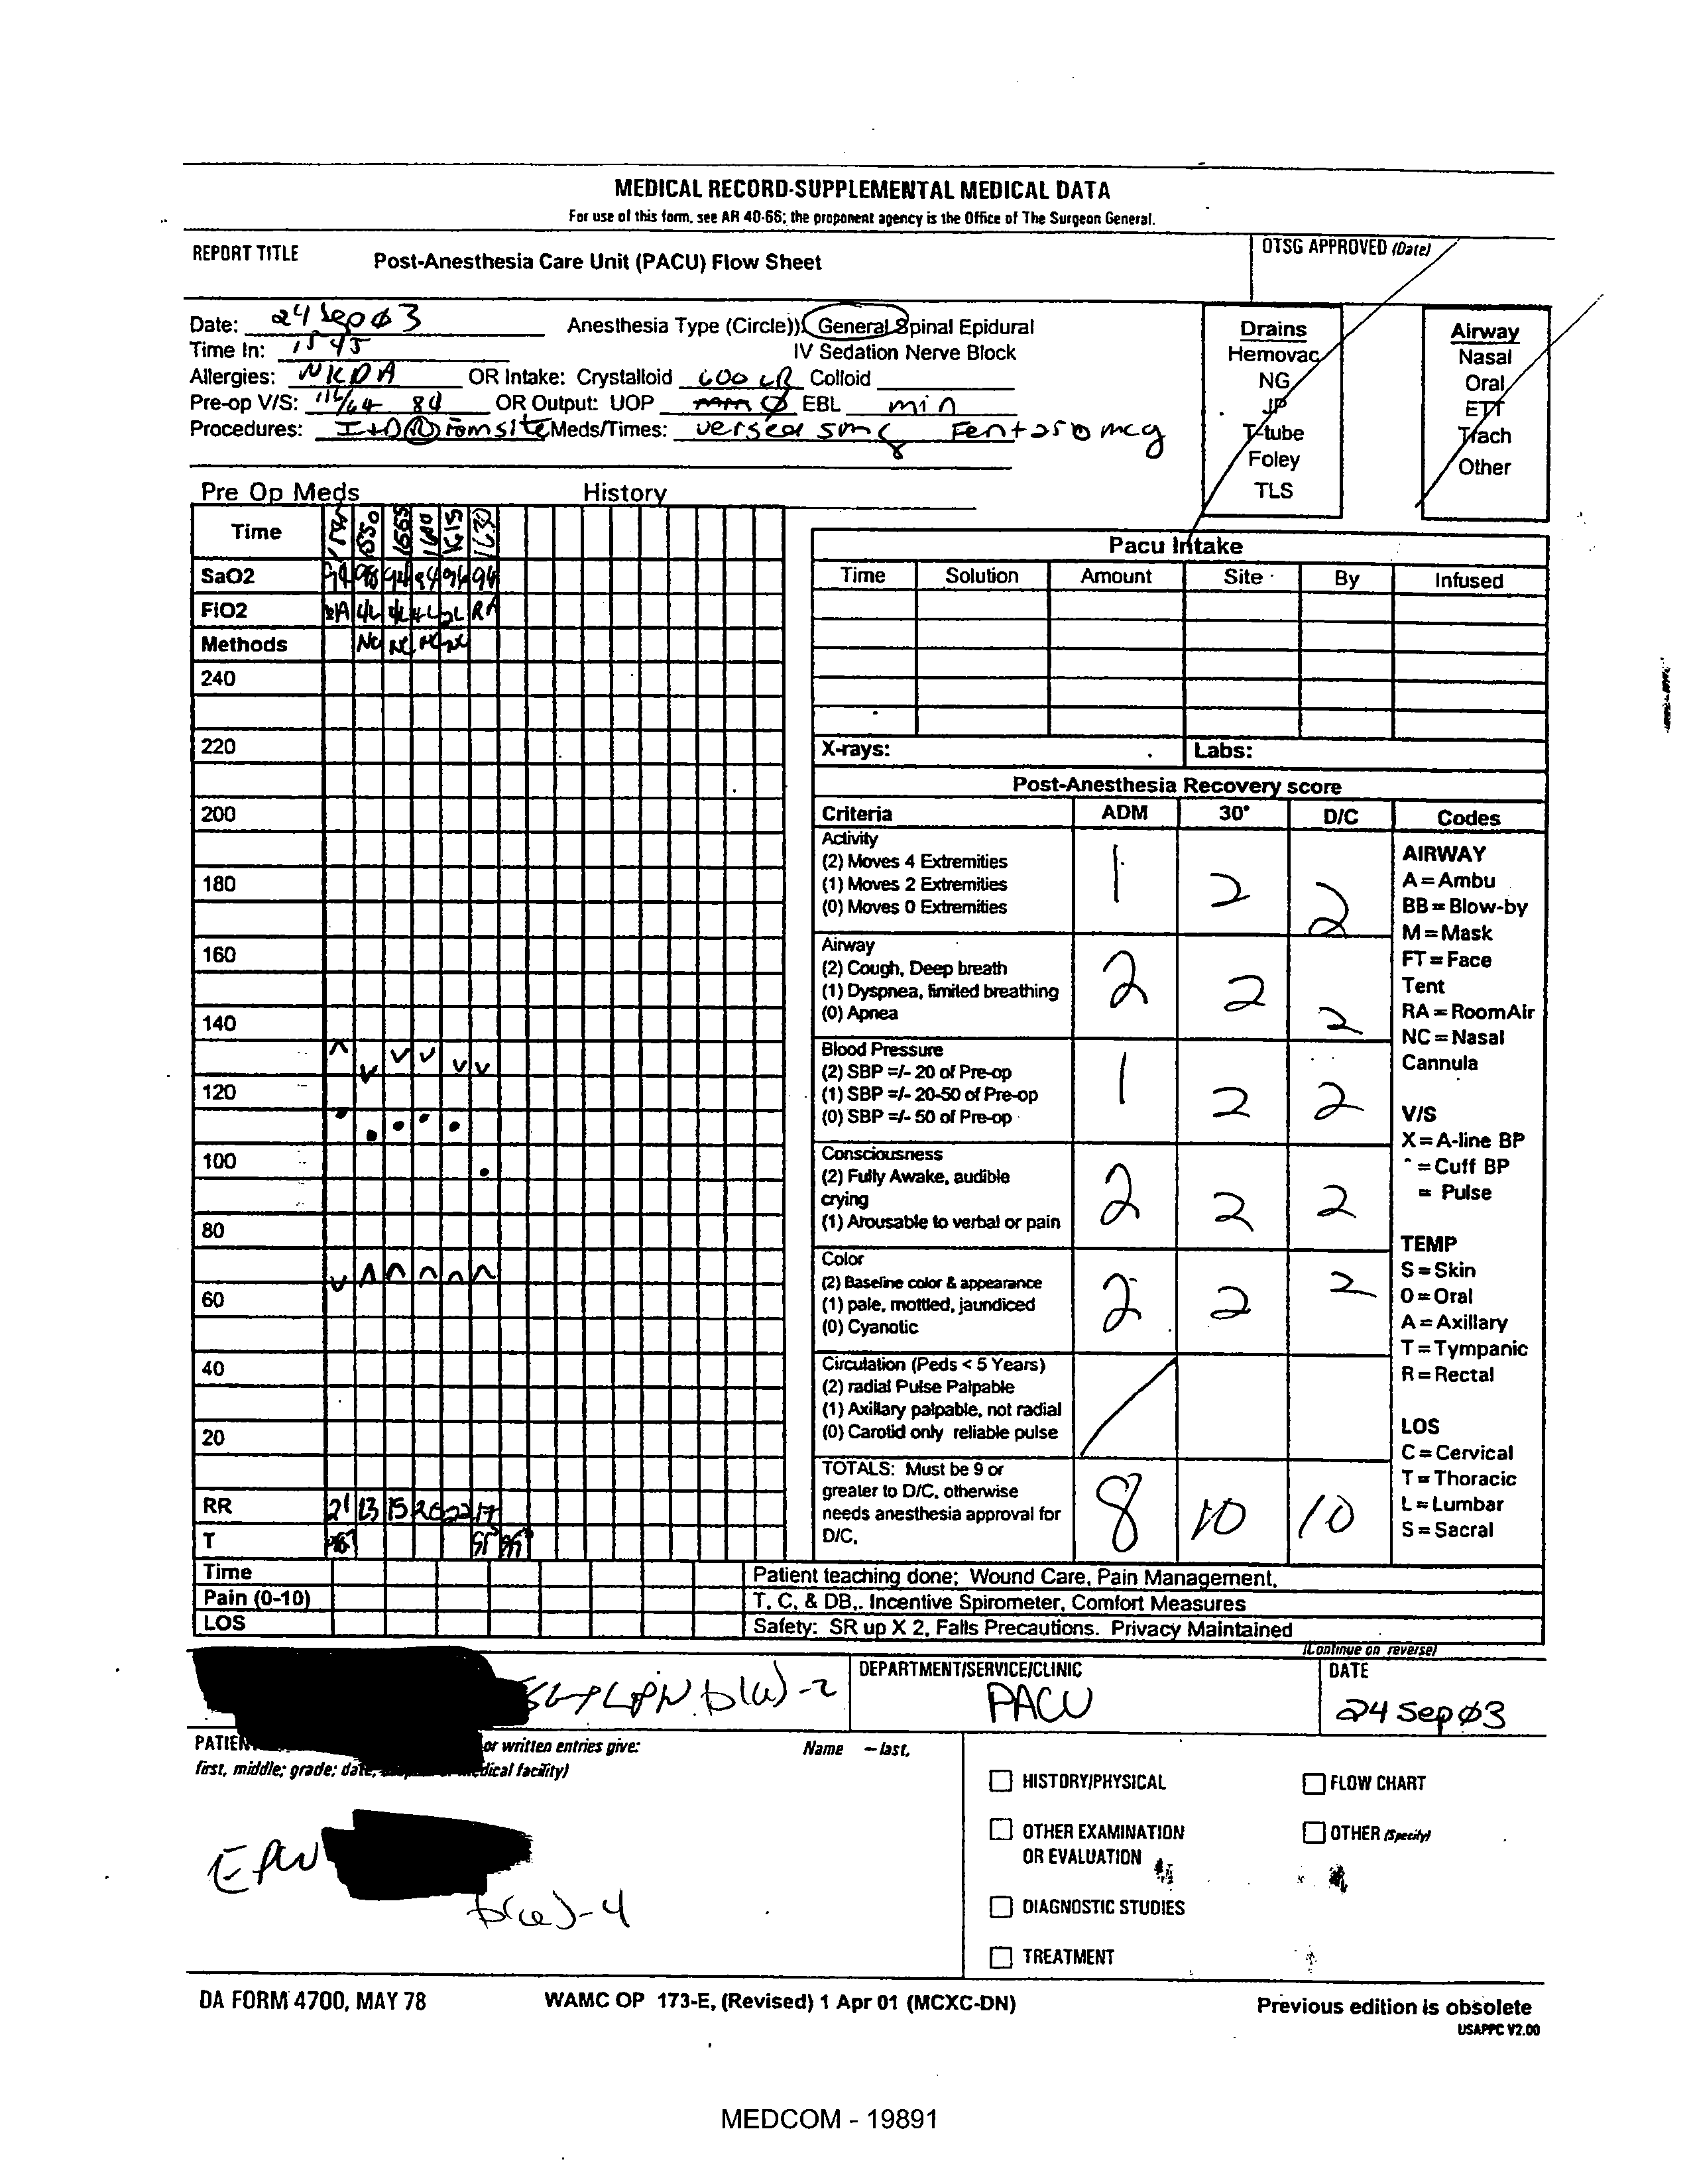 MEDICAL RECORD-SUPPLEMENTAL MEDICAL DATA
For use of this form, see AR 40-66; the proponent agency is the Office of The Surgeon General.
REPORT TITLE
Post-Anesthesia Care Unit (PACU) Flow Sheet
OTSG APPROVED (Date)
Date: 24 Sep Ø3
Anesthesia Type (Circle)) General Spinal Epidural
Time In: 1545
IV Sedation Nerve Block
Allergies: NKDA OR Intake: Crystalloid 600 LR Colloid
Pre-op V/S: 116/64 84 OR Output: UOP Ø EBL min
Procedures: I+D (R) Meds/Times: versed 5mg Fent 250 mcg
Drains
Hemovac
NG
JP
T-tube
Foley
TLS
Airway
Nasal
Oral
ETT
Trach
Other
Pre Op Meds History
Time 1550 1555 1600 1615 1630
SaO2 94 98 94 94 96 94
FIO2 RA 4L 4L 4L 2L RA
Methods NC NC NC NC
240
220
200
180
160
140
120
100
80
60
40
20
RR 21 13 15 20 22 17
T
Time
Pain (0-10)
LOS
Pacu Intake
Time Solution Amount Site By Infused
X-rays: Labs:
Post-Anesthesia Recovery score
Criteria ADM 30° D/C Codes
Activity
(2) Moves 4 Extremities
(1) Moves 2 Extremities
(0) Moves 0 Extremities
1 2 2
Airway
(2) Cough, Deep breath
(1) Dyspnea, limited breathing
(0) Apnea
2 2 2
Blood Pressure
(2) SBP =/- 20 of Pre-op
(1) SBP =/- 20-50 of Pre-op
(0) SBP =/- 50 of Pre-op
1 2 2
Consciousness
(2) Fully Awake, audible
crying
(1) Arousable to verbal or pain
2 2 2
Color
(2) Baseline color & appearance
(1) pale, mottled, jaundiced
(0) Cyanotic
2 2 2
Circulation (Peds < 5 Years)
(2) radial Pulse Palpable
(1) Axillary palpable, not radial
(0) Carotid only reliable pulse
TOTALS: Must be 9 or
greater to D/C, otherwise
needs anesthesia approval for
D/C.
8 10 10
AIRWAY
A = Ambu
BB = Blow-by
M = Mask
FT = Face
Tent
RA = RoomAir
NC = Nasal
Cannula
V/S
X = A-line BP
^ = Cuff BP
= Pulse
TEMP
S = Skin
O = Oral
A = Axillary
T = Tympanic
R = Rectal
LOS
C = Cervical
T = Thoracic
L = Lumbar
S = Sacral
Patient teaching done; Wound Care, Pain Management,
T, C, & DB,. Incentive Spirometer, Comfort Measures
Safety: SR up X 2, Falls Precautions. Privacy Maintained
(Continue on reverse)
b(6)-2
DEPARTMENT/SERVICE/CLINIC
PACU
DATE
24 Sep Ø3
or written entries give: Name - last,
first, middle; grade; date; medical facility)
EPW
b(6)-4
HISTORY/PHYSICAL
FLOW CHART
OTHER EXAMINATION
OR EVALUATION
OTHER (Specify)
DIAGNOSTIC STUDIES
TREATMENT
DA FORM 4700, MAY 78
WAMC OP 173-E, (Revised) 1 Apr 01 (MCXC-DN)
Previous edition is obsolete
USAPPC V2.00
MEDCOM - 19891